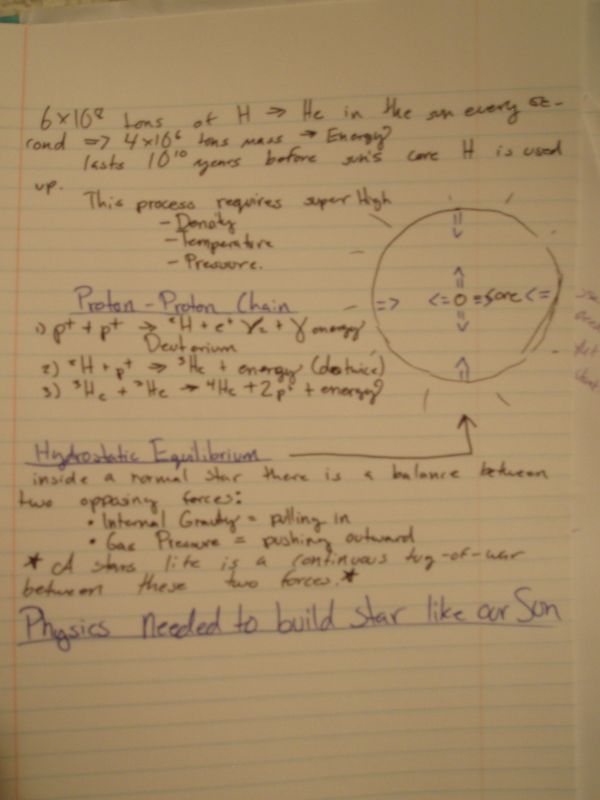 6×10⁸ tons of H ⇒ He in the sun every se-
cond ⇒ 4×10⁶ tons mass → Energy?
lasts 10¹⁰ years before sun's core H is used
up.
This process requires super High
- Density
- Temperature
- Pressure.
Proton-Proton Chain
1) p⁺ + p⁺ → ²H + e⁺ + γ energy
Deuterium
2) ²H + p⁺ → ³He + energy (do twice)
3) ³He + ³He → ⁴He + 2p⁺ + energy?
⇒ <= O = core <=
Hydrostatic Equilibrium
inside a normal star there is a balance between
two opposing forces:
• Internal Gravity = pulling in
• Gas Pressure = pushing outward
* A stars life is a continuous tug-of-war
between these two forces.*
Physics needed to build star like our Sun